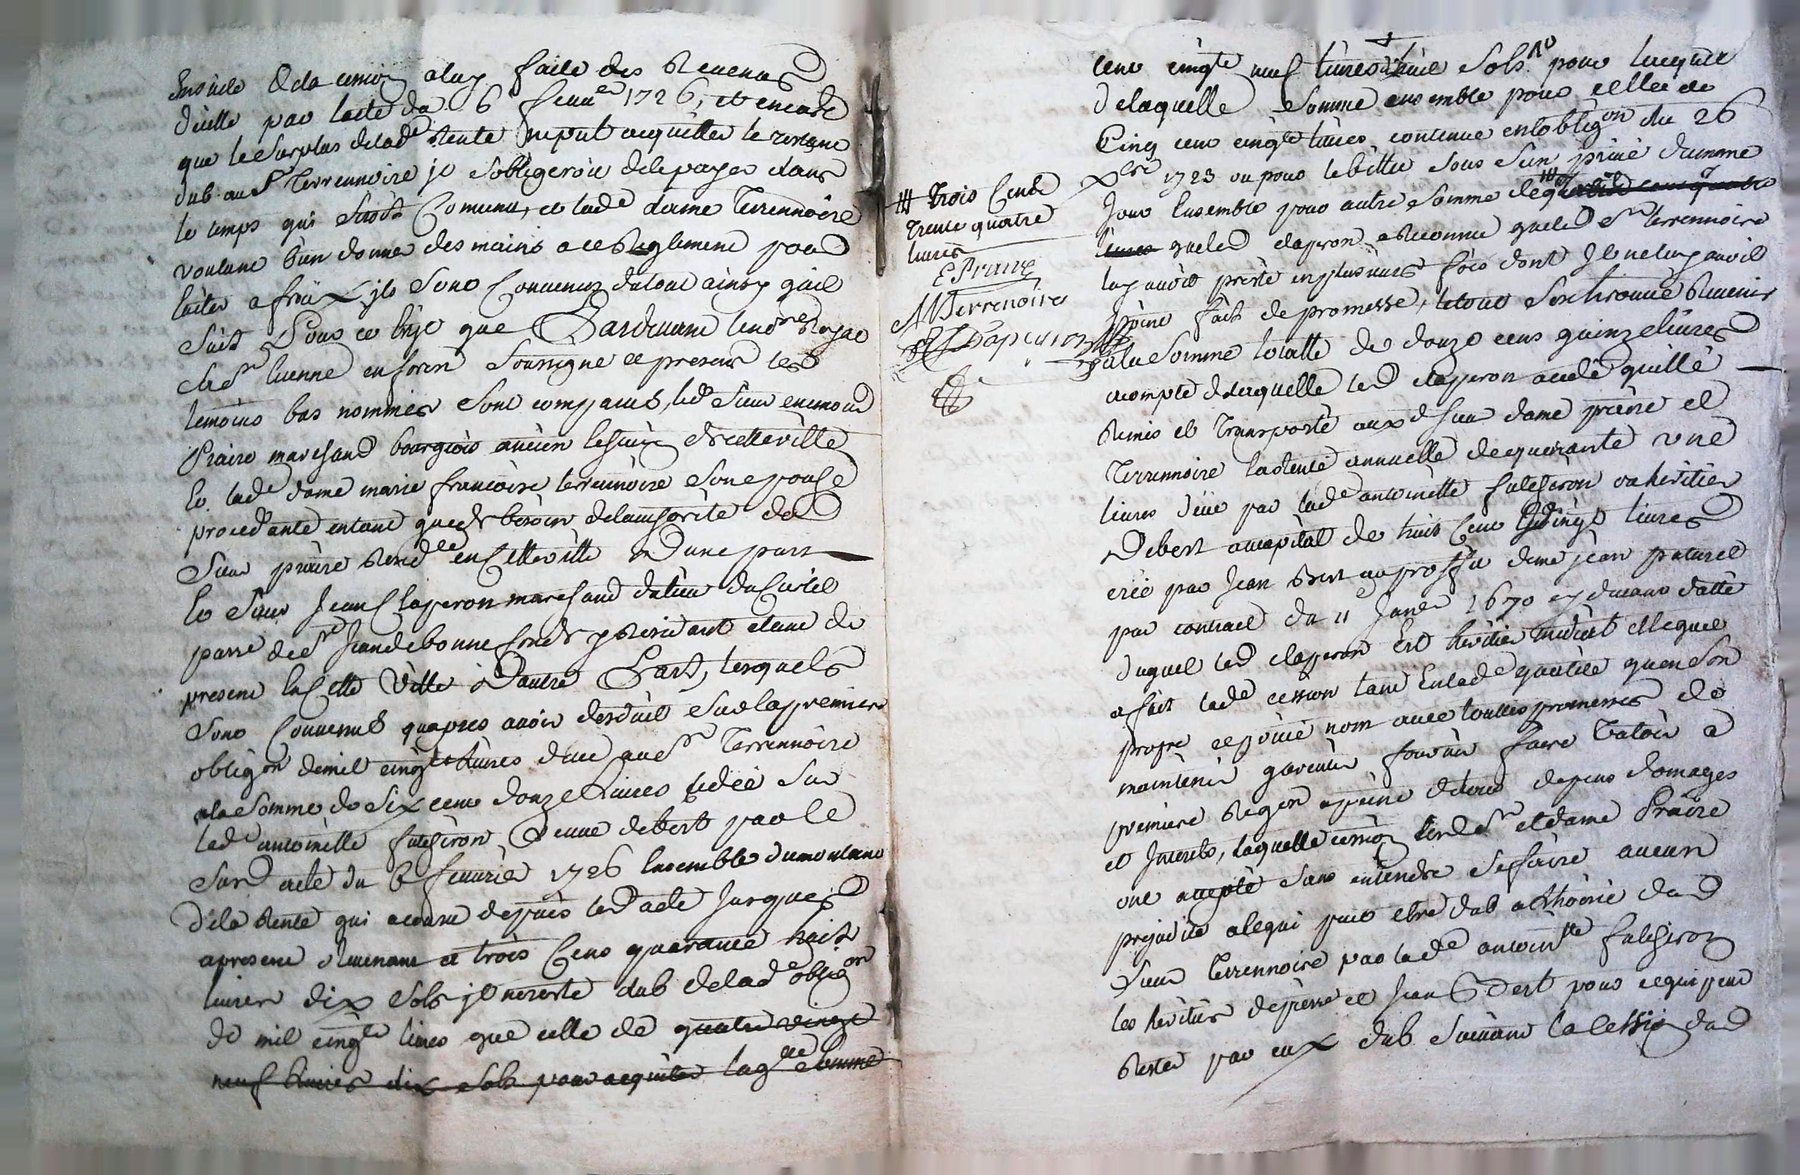 Ensuite de la cession a luy faite des Revenus
d'icelle par lacte du 6 feuu.er 1726, et encore
que le surplus delad.e Rente ne put acquitter le restant
dub aud. s.r Terrennoire il s'obligeroit de le payer dans
le temps qui seroit Convenu, et lad.e dame Terrennoire
voulant bien donner des mains a ce Reglement pour
éviter a fraix, ils sont Convenus du tout ainsy quil
suit Pour ce
temoins bas nommés sont comparus, led. sieur enemond
Praire marchand bourgeois ancien eschevin de cette ville
et lad.e dame marie francoise terrennoire son epouse
procedante en tant que de besoin de lauthorité dud
Sieur praire Resid.te en Cette ville d'une part
et Sieur Jean Claperon marchand du lieu du
parr.e de s.t Jean de bonnefonds y Residant etant de
present En Cette Ville D'autre Part, lesquels
sont Convenus quapres avoir desduit sur la premiere
oblig.on de mil cinq.te livres due aud. s.r Terrennoire
la somme de six cent douze Livres cedée sur
lad.e antoinette fulchiron veuve de bert par le
Sud. acte du 6 feuurier 1726 Ensemble du montant
de la Rente qui a couru depuis led acte Jusques
a present Revenant a trois Cens quarante huit
livres dix sols il ne reste dub de lad.e oblig.on
de mil cinq.te livres que celle de quatre vingt
neuf livres dix sols pour acquiter laq.lle somme
trois Cent
trente quatre
livres
E Praire
M Terrenoire
J Claperon
cent cinq.te neuf livres huit sols pour lacquit
de laquelle somme ensemble pour celle de
Cinq cent cinq.te livres contenue en loblig.on du 26
x.bre 1723 ou pour le billet sous sein privé du meme
Jour Ensemble pour autre somme de
livres que led claperon a Reconnu que led s.r terrennoire
luy avoit presté en plusieurs fois dont Il ne luy avoit
point fait de promesse, le tout sest trouvé Revenir
a la somme totalle de douze cens quinze livres
a compte de laquelle led claperon a cedé quitté
Remis et transporté auxd sieur dame praire et
Terrennoire la Rente annuelle de quarante une
livres düe par lad.e antoinette fulchiron ou heritier
De bert au capital de huit Cent vingt livres
créé par Jean Bert au proffit de m.e jean paturel
par contract du 11 Janv.r 1670
duquel led claperon est heritier mediat et lequel
a fait lad.e cession tant En lad.e qualité quen son
propre et privé nom avec touttes promesses de
maintenir garentir fournir faire valoir a
premiere Req.on a peine de tous depens domages
et Interets, laquelle cession lesd s.r et dame Praire
ont accepté sans entendre se faire aucun
prejudice a ce qui peut etre dub a lhoirie dud
sieur Terrennoire par lad.e antoin.tte fulchiron
les heritiers de pierre et Jean Bert pour ce qui peut
Rester par eux dub suivant la Cession dud